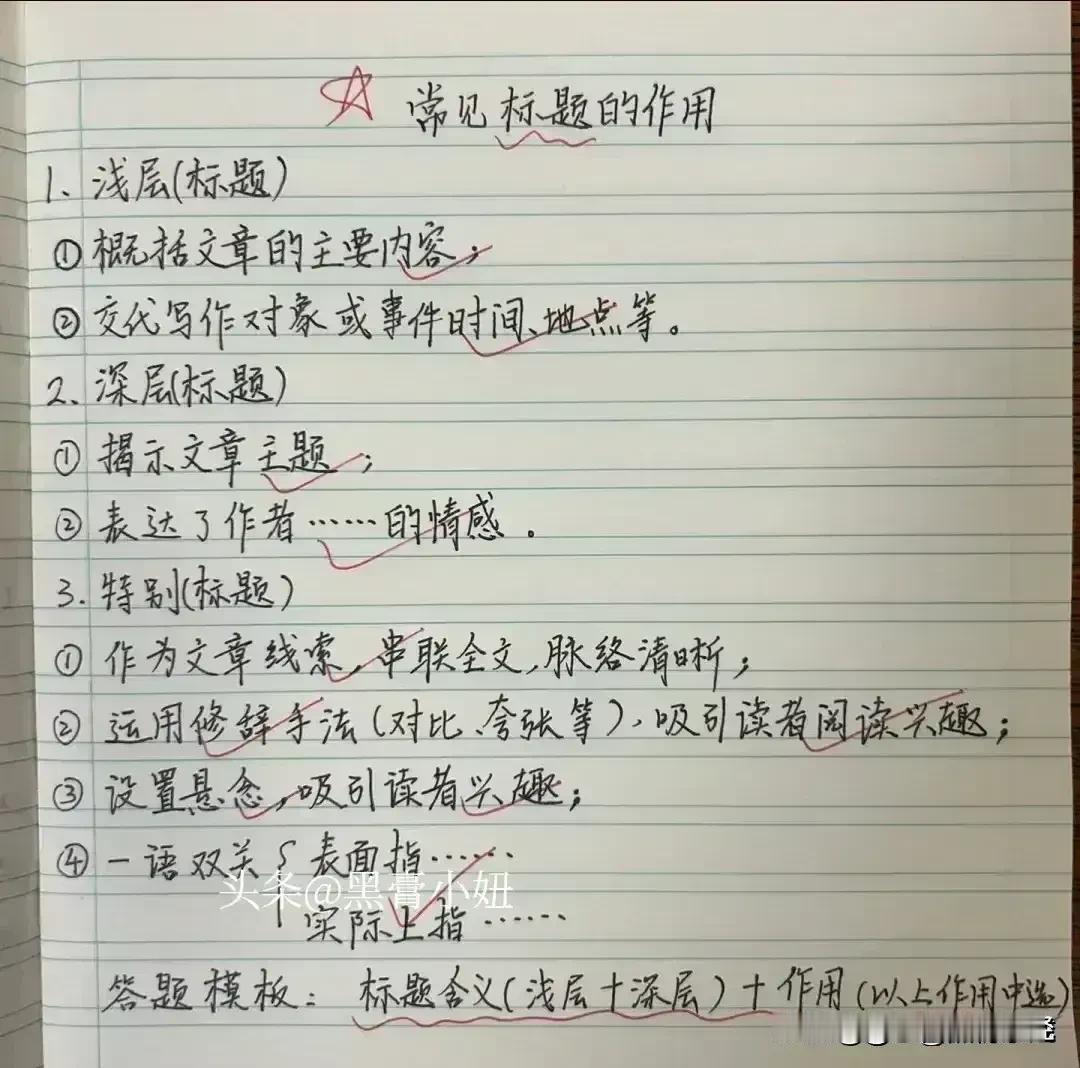 常见标题的作用
1. 浅层(标题)
①概括文章的主要内容;
②交代写作对象或事件时间、地点等。
2. 深层(标题)
①揭示文章主题;
②表达了作者……的情感.
3. 特别(标题)
①作为文章线索,串联全文,脉络清晰;
②运用修辞手法(对比、夸张等),吸引读者阅读兴趣;
③设置悬念,吸引读者兴趣;
④一语双关{表面指……
头条@黑膏小妞
实际上指……
答题模板: 标题含义(浅层+深层)+作用(以上作用中选)